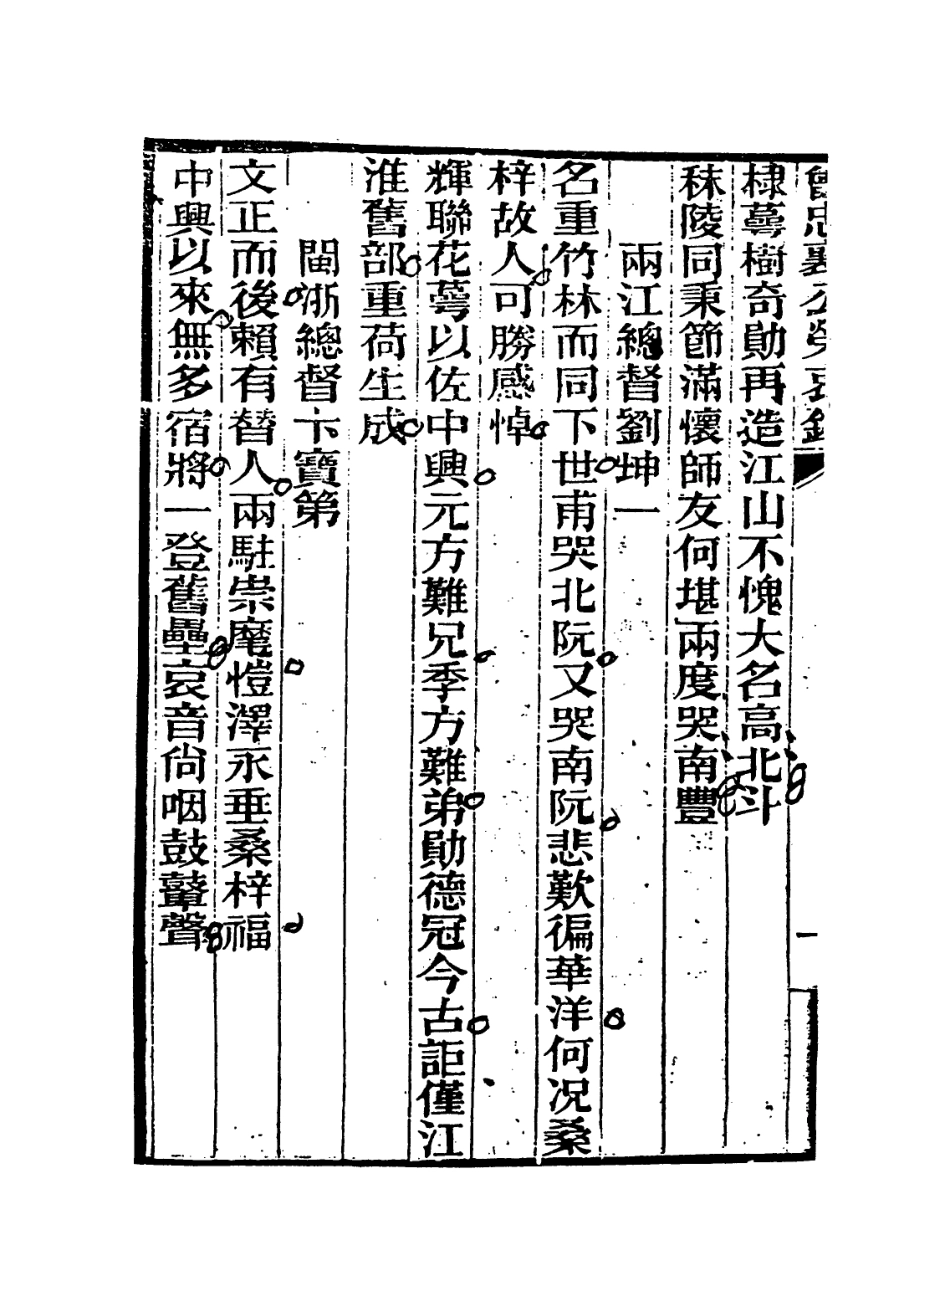 曾忠襄公榮哀錄
一
棣萼樹奇勛再造江山不愧大名高北斗
秣陵同秉節滿懷師友何堪兩度哭南豐
兩江總督劉坤一
名重竹林而同下世甫哭北阮又哭南阮悲歎徧華洋何况桑
梓故人可勝感悼
輝聯花萼以佐中興元方難兄季方難弟勛德冠今古詎僅江
淮舊部重荷生成
閩浙總督卞寶第
文正而後賴有替人兩駐崇麾愷澤永垂桑梓福
中興以來無多宿將一登舊壘哀音尙咽鼓鼙聲